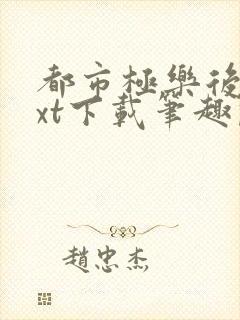 都市極樂後
xt下載筆趣
趙忠杰